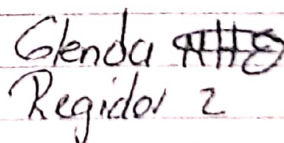 Glenda
Regidor 2